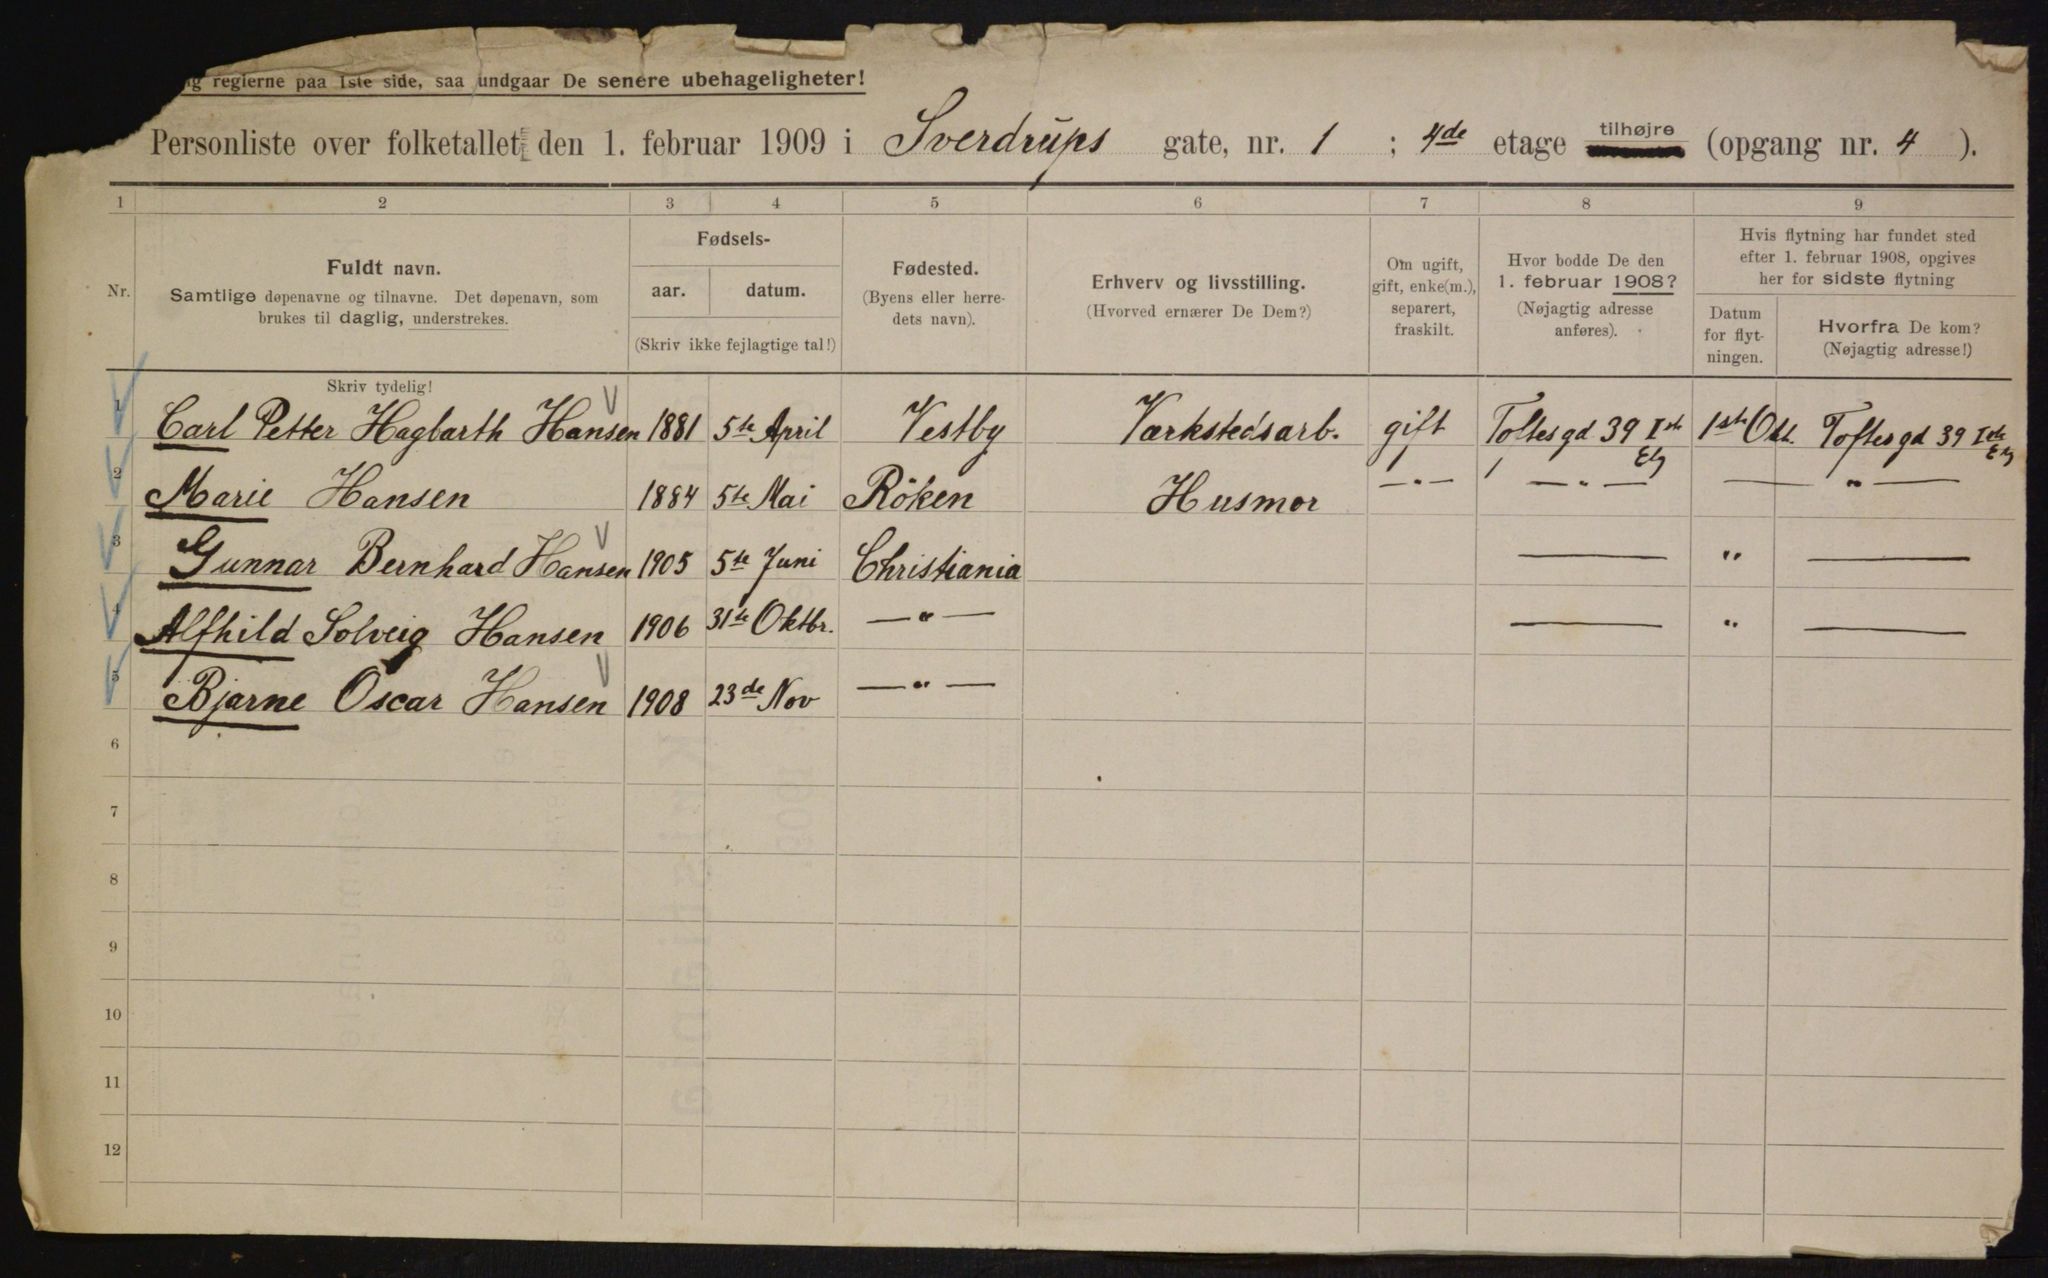 regierne paa 1ste side, saa undgaar De senere ubehageligheter!
Personliste over folketallet den 1. februar 1909 i Sverdrups gate, nr. 1 ; 4de etage tilhøjre (opgang nr. 4 ).
1 2 3 4 5 6 7 8 9
Nr.
Fuldt navn.
Samtlige døpenavne og tilnavne. Det døpenavn, som
brukes til daglig, understrekes.
Skriv tydelig!
Fødsels-
aar. datum.
(Skriv ikke fejlagtige tal!)
Fødested.
(Byens eller herre-
dets navn).
Erhverv og livsstilling.
(Hvorved ernærer De Dem?)
Om ugift,
gift, enke(m.),
separert,
fraskilt.
Hvor bodde De den
1. februar 1908?
(Nøjagtig adresse
anføres).
Hvis flytning har fundet sted
efter 1. februar 1908, opgives
her for sidste flytning
Datum
for flyt-
ningen.
Hvorfra De kom?
(Nøjagtig adresse!)
1 Carl Petter Hagbarth Hansen 1881 5te April Vestby Værkstedsarb. gift Toftesgd 39 Iste Etg 1ste Okt. Toftesgd 39 Iste Etg
2 Marie Hansen 1884 5te Mai Röken Husmor —"— —"— — " —
3 Gunnar Bernhard Hansen 1905 5te Juni Christiania — " —
4 Alfhild Solveig Hansen 1906 31te Oktbr. —"— — " —
5 Bjarne Oscar Hansen 1908 23de Nov —"—
6
7
8
9
10
11
12